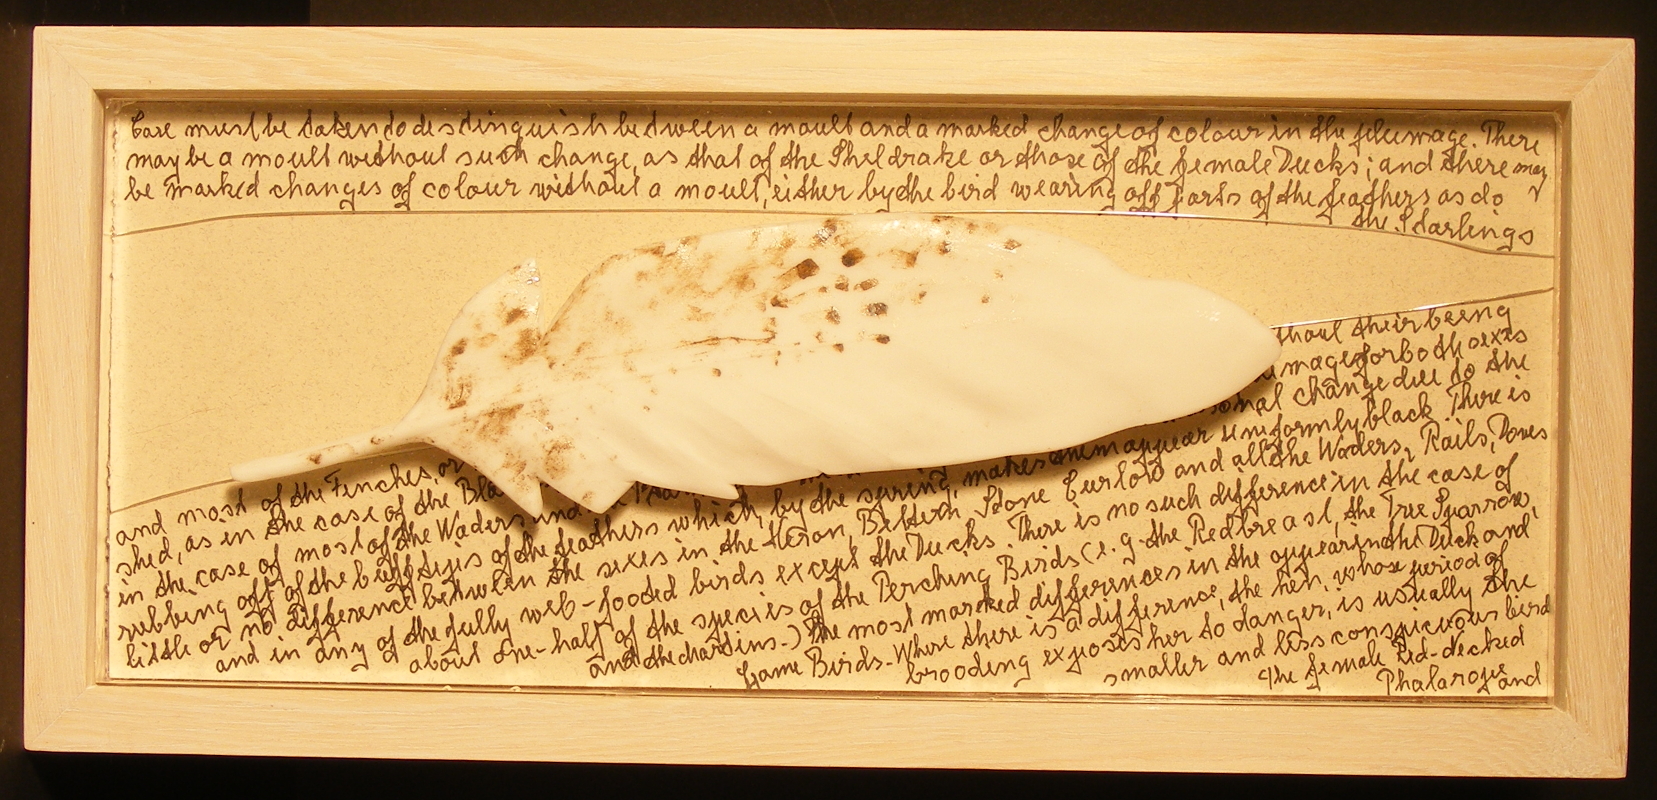 Care must be taken to distinguish between a moult and a marked change of colour in the plumage. There
may be a moult without such change, as that of the Sheldrake or those of the female Ducks; and there may
be marked changes of colour without a moult, either by the bird wearing off parts of the feathers as do
the Starlings
and most of the Finches, or thout their being
shed, as in the case of the Bla umage for both sexes
in the case of most of the Waders and onal change due to the
rubbing off of the buff tips of the feathers which, by the spring, makes them appear uniformly black. There is
little or no difference between the sexes in the Heron, Bittern, Stone Curlew and all the Waders, Rails, Doves
and in any of the fully web-footed birds except the Ducks. There is no such difference in the case of
about one-half of the species of the Perching Birds (e.g. the Redbreast, the Tree Sparrow,
and the Martins.) The most marked differences in the appear in the Duck and
Game Birds. Where there is a difference, the hen, whose period of
brooding exposes her to danger, is usually the
smaller and less conspicuous bird
The female Red-necked
Phalarope and